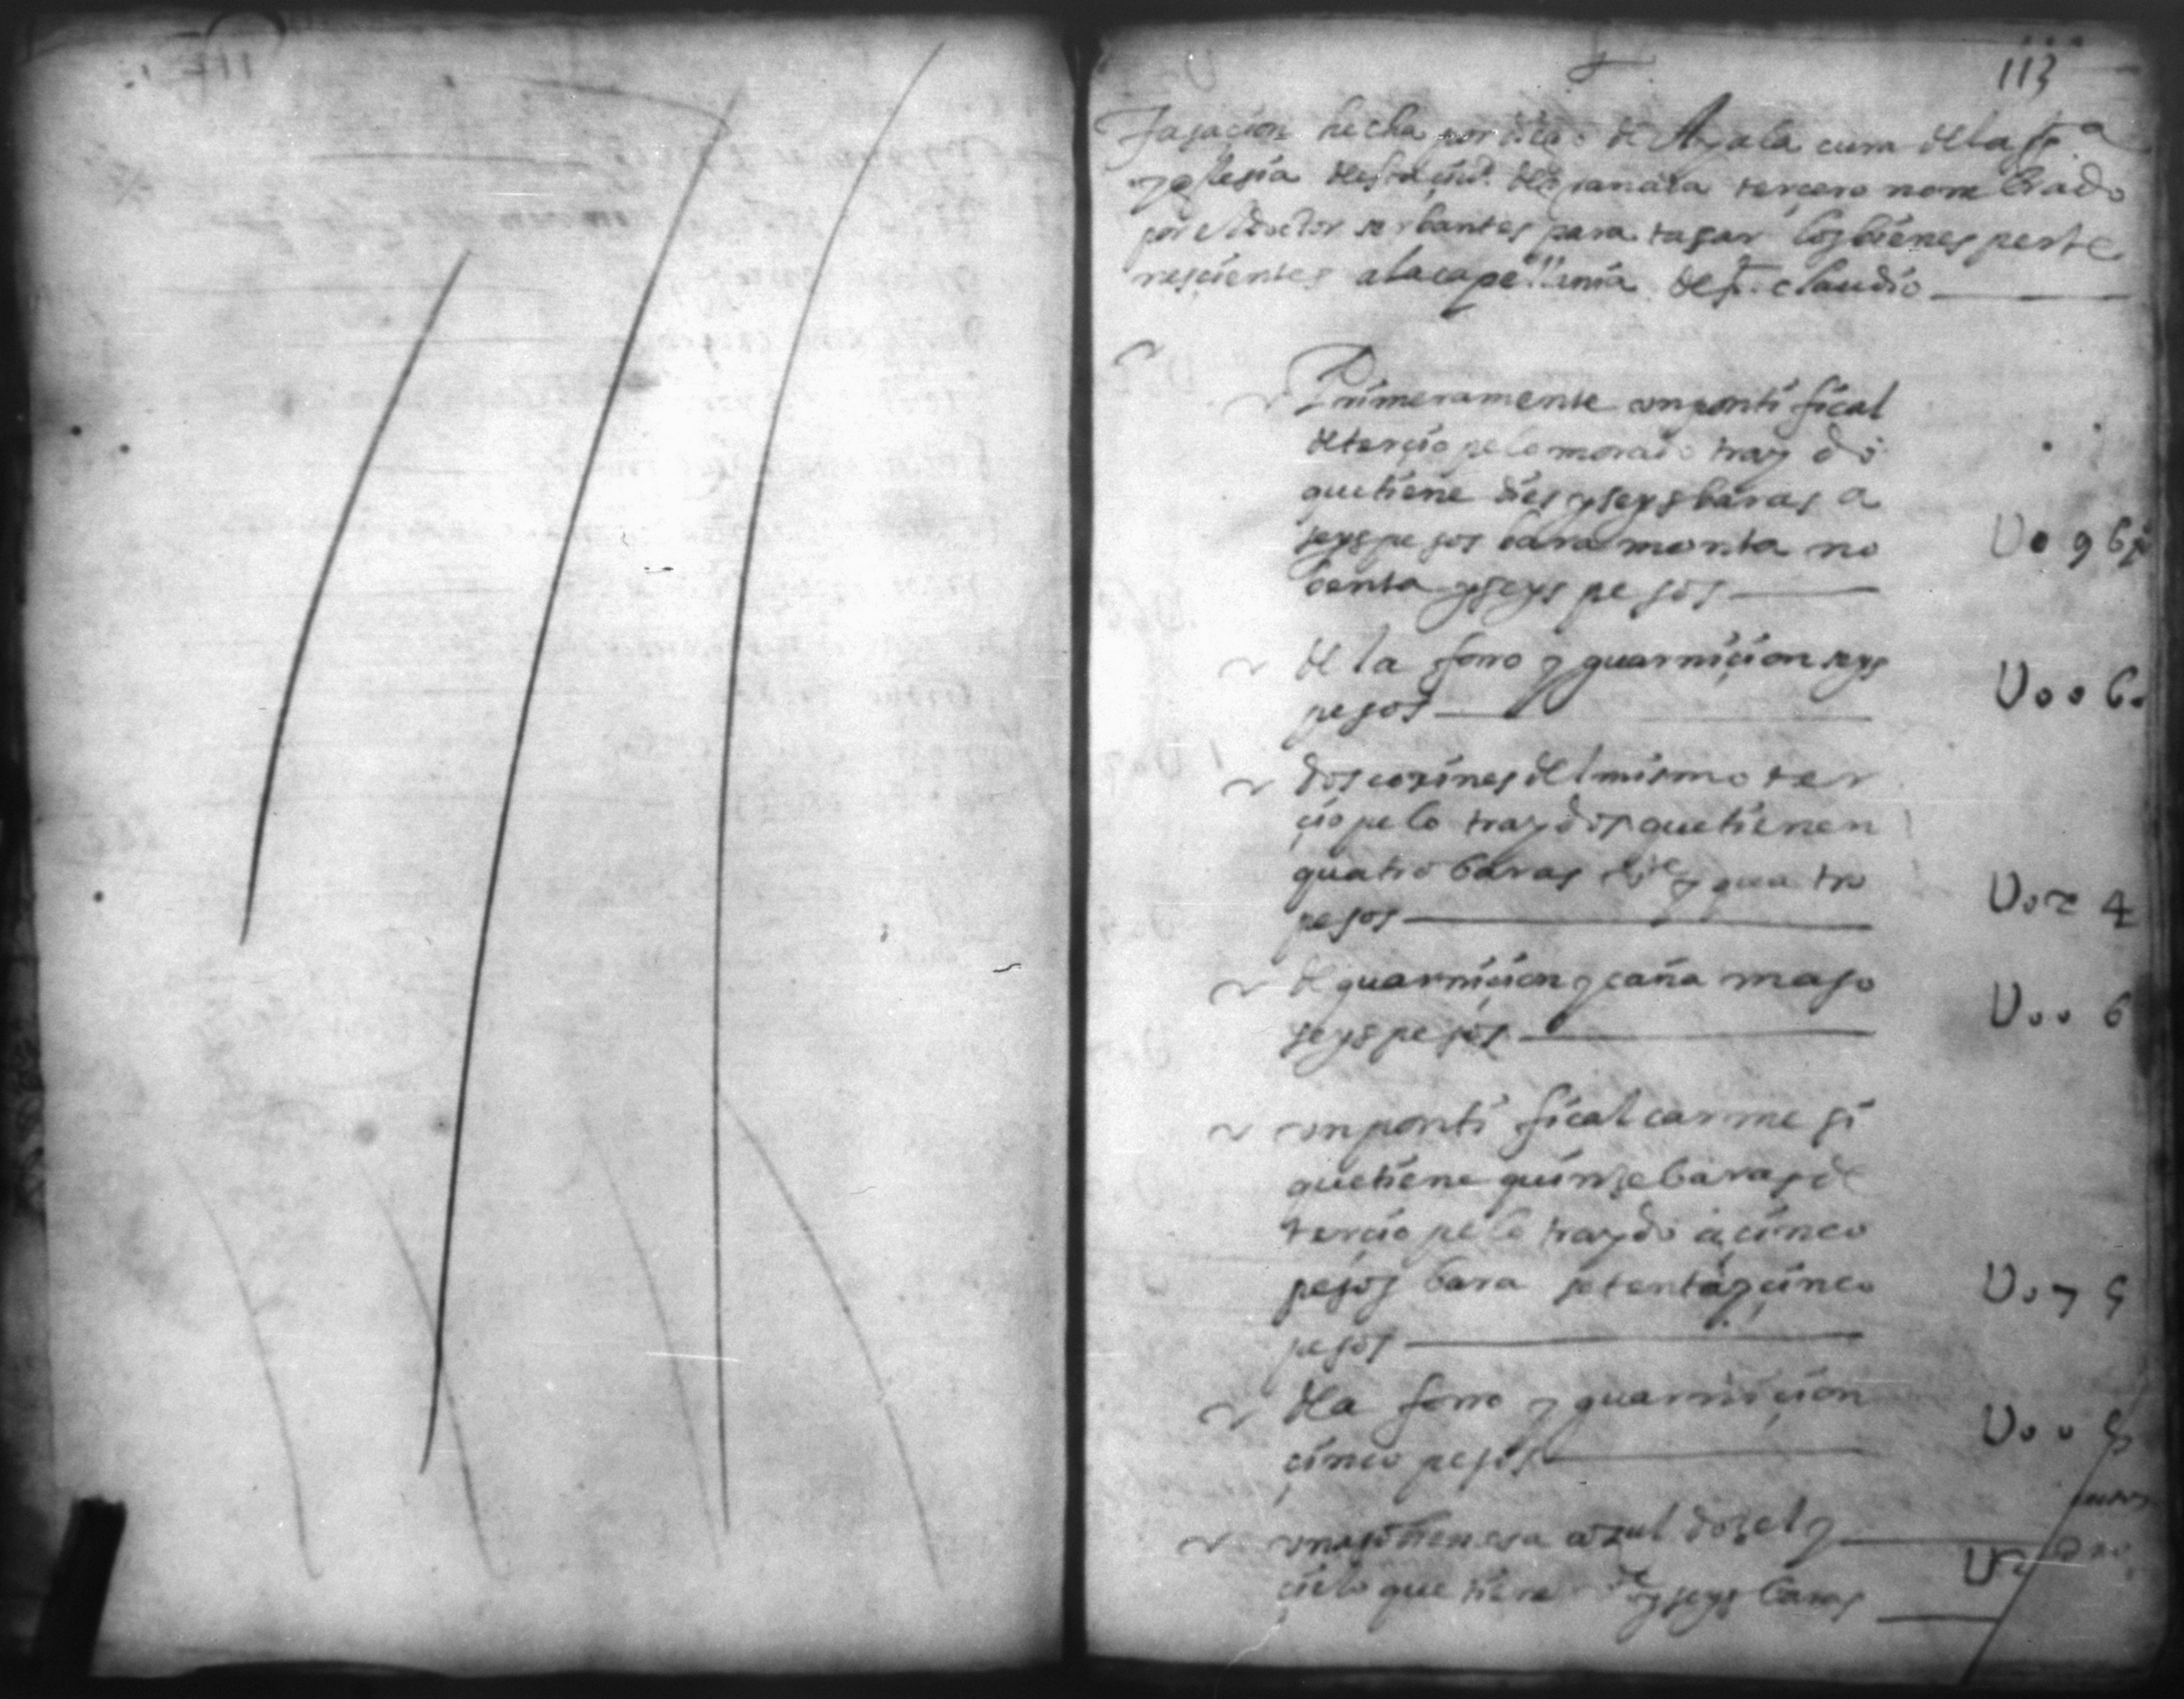 113
Tasaçion hecha por di.o de Ayala cura de la sta
yglesia desta çiud. de panama terçero nombrado
por el doctor serbantes para tasar los bienes perte
nesçientes a la capellania de f. claudio
Primeramente un pontifical
de terçiopelo morado traydo
que tiene dies y seys baras a
seys pesos bara monta no
benta y seys pesos
U096 p
de la forro y guarniçion seys
pesos
U006
dos coxines del mismo ter
çiopelo traydos que tienen
quatro baras y quatro
pesos
U024
de guarniçion y caña maso
seys pesos
U006
un pontifical carmesi
que tiene quinse baras de
terçiopelo traydo a çinco
pesos bara setenta y çinco
pesos
U075
dla forro y guarniçion
çinco pesos
U005
una sobremesa azul dosel y
çielo que tiene y seys baras
U2